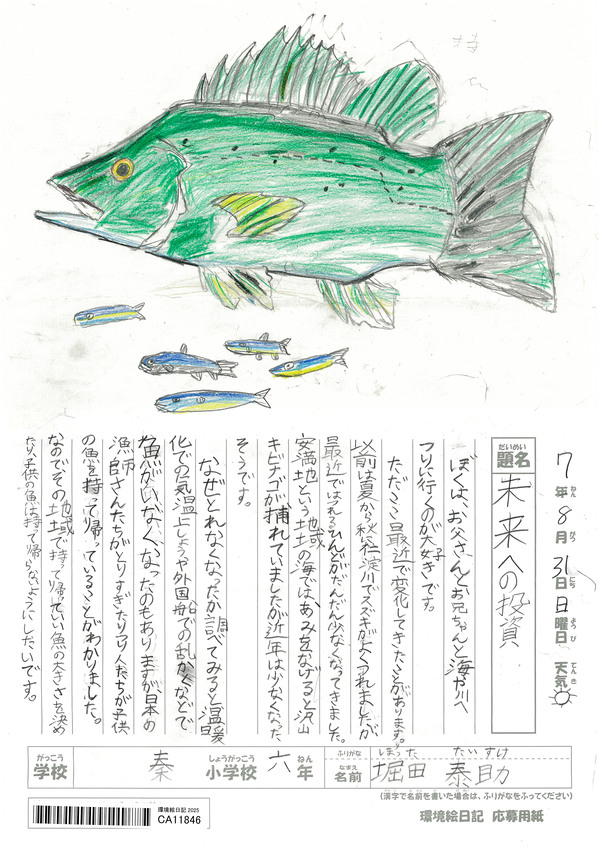 7年 8月 31日 日曜日 天気
ねん がつ にち ようび てんき
だいめい
題名 未来への投資
ぼくは、お父さんとお兄ちゃんと海や川へ
つりに行くのが大好きです。
ただここ最近で変化してきたことがあります。
以前は夏から秋に仁淀川でスズキがよくつれましたが
最近ではつれるひんどがだんだん少なくなってきました。
安満地という地域の海では、あみをなげると沢山
キビナゴが捕れていましたが近年は少なくなった
そうです。
なぜとれなくなったか調べてみると温暖
化での気温上しょうや外国船での乱かくなどで
魚がいなくなったのもありますが、日本の
漁師さんたちがとりすぎたりつり人たちが子供
の魚を持って帰っていることがわかりました。
なのでその地域で持って帰っていい魚の大きさを決め
たり、子供の魚は持って帰らないようにしたいです。
がっこう しょうがっこう ねん ふりがな ほった たいすけ
学校 秦 小学校 六年 なまえ 名前 堀田 泰助
(漢字で名前を書いた場合は、ふりがなをふってください)
環境絵日記 2025
CA11846
環境絵日記 応募用紙